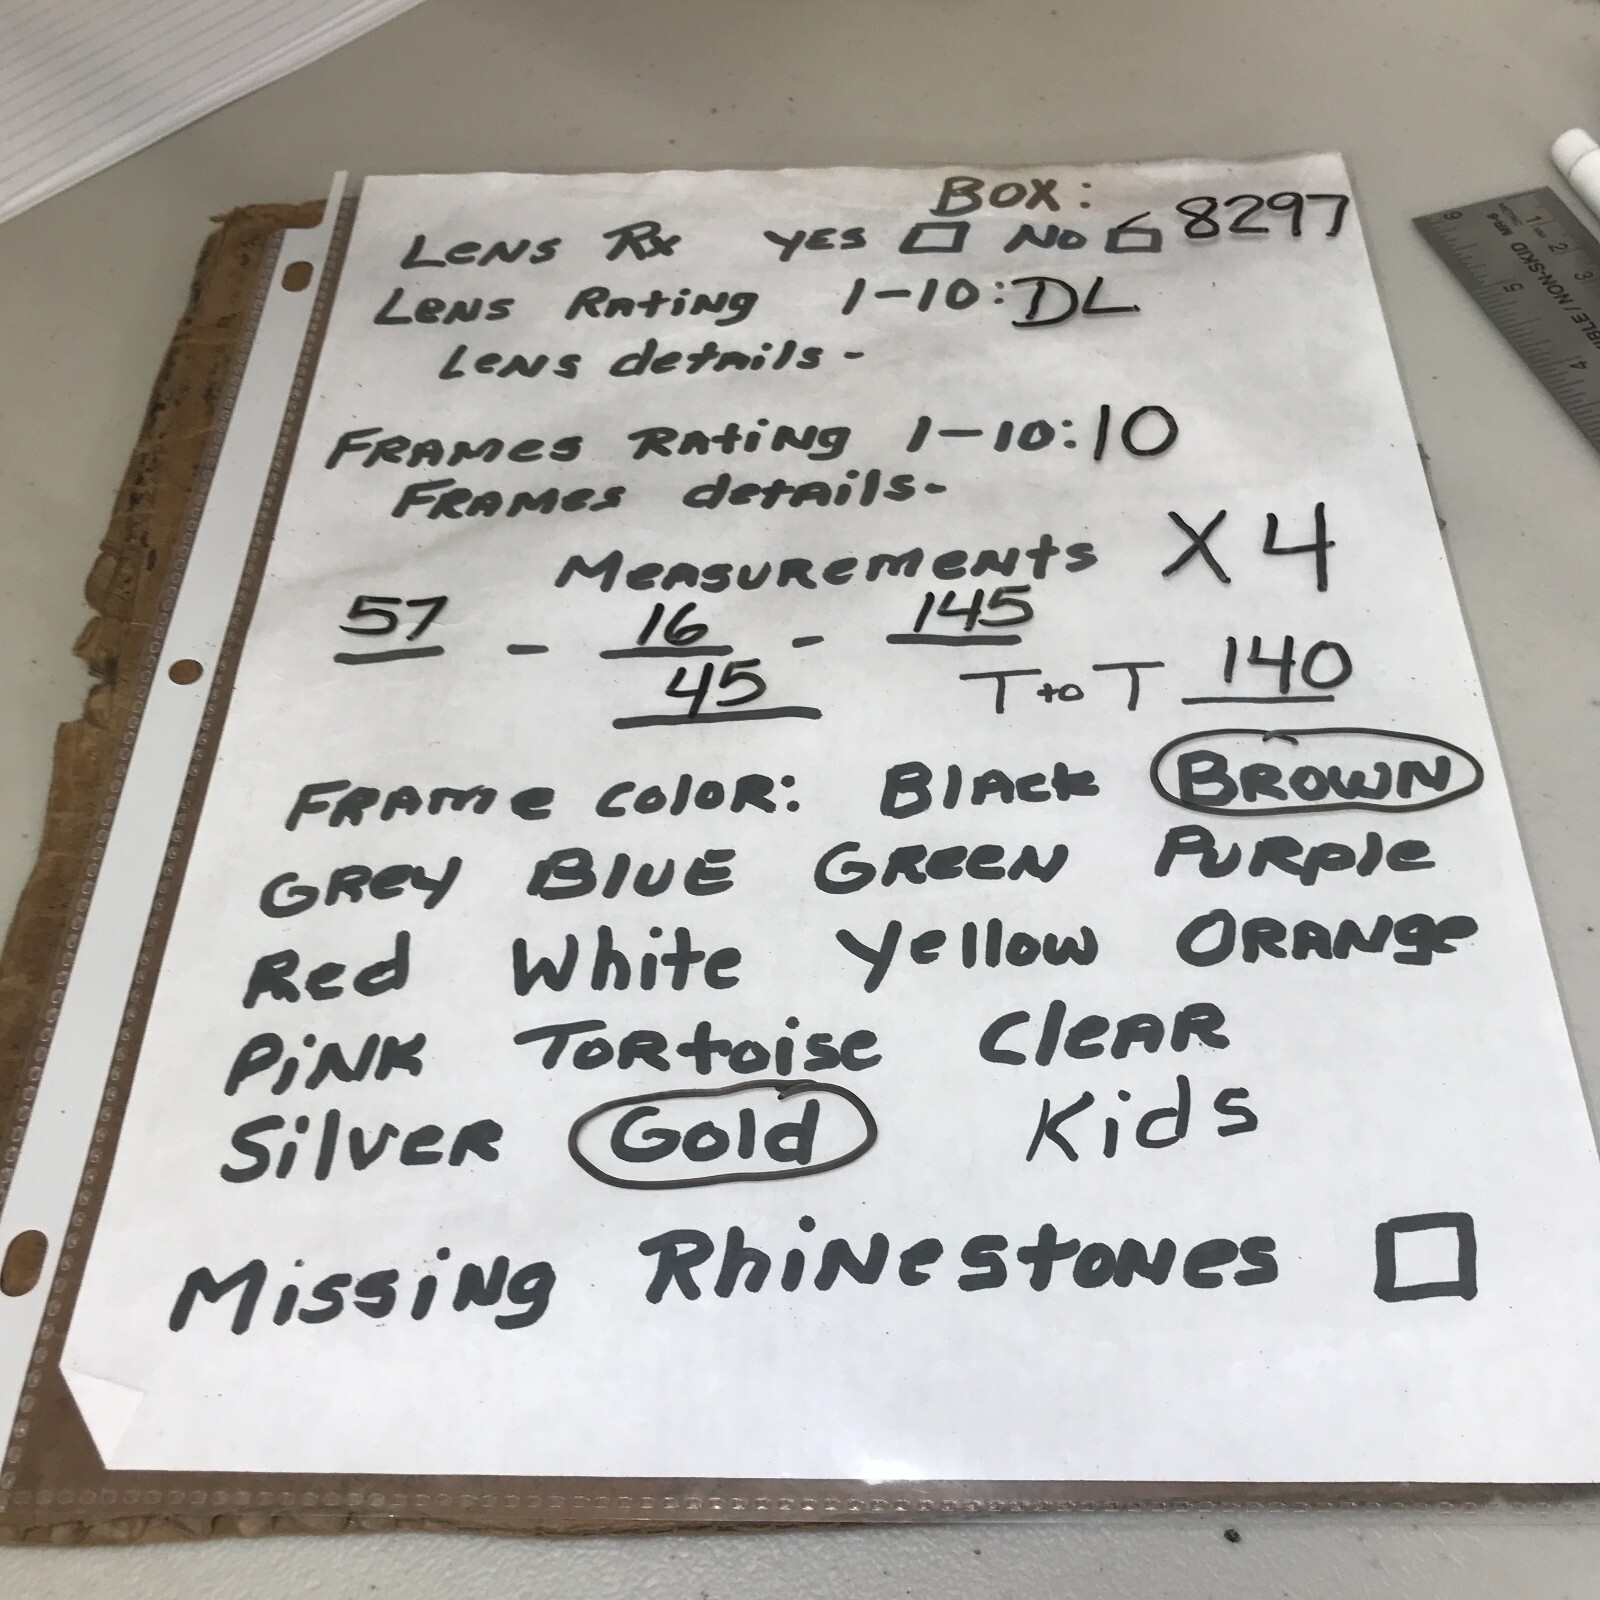 BOX: 8297
Lens Rx YES ☐ NO ☐
Lens Rating 1-10: DL
Lens details -
Frames Rating 1-10: 10
Frames details-
Measurements X 4
57 - 16 - 145
45 T to T 140
Frame color: Black Brown
Grey Blue Green Purple
Red White Yellow Orange
Pink Tortoise Clear
Silver Gold Kids
Missing Rhinestones ☐
6 5 4
1 2 3
NON-SKID